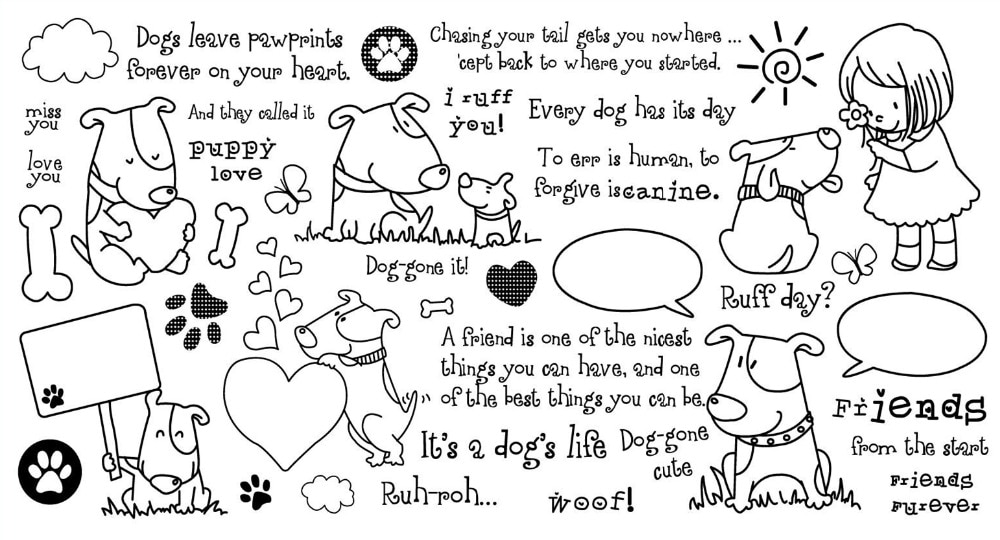 Dogs leave pawprints
forever on your heart.
Chasing your tail gets you nowhere ...
'cept back to where you started.
miss
you
love
you
And they called it
puppy
love
i ruff
you!
Every dog has its day
To err is human, to
forgive is canine.
Dog-gone it!
Ruff day?
A friend is one of the nicest
things you can have, and one
of the best things you can be.
It's a dog's life
Dog-gone
cute
Friends
from the start
Ruh-roh...
woof!
Friends
Furever